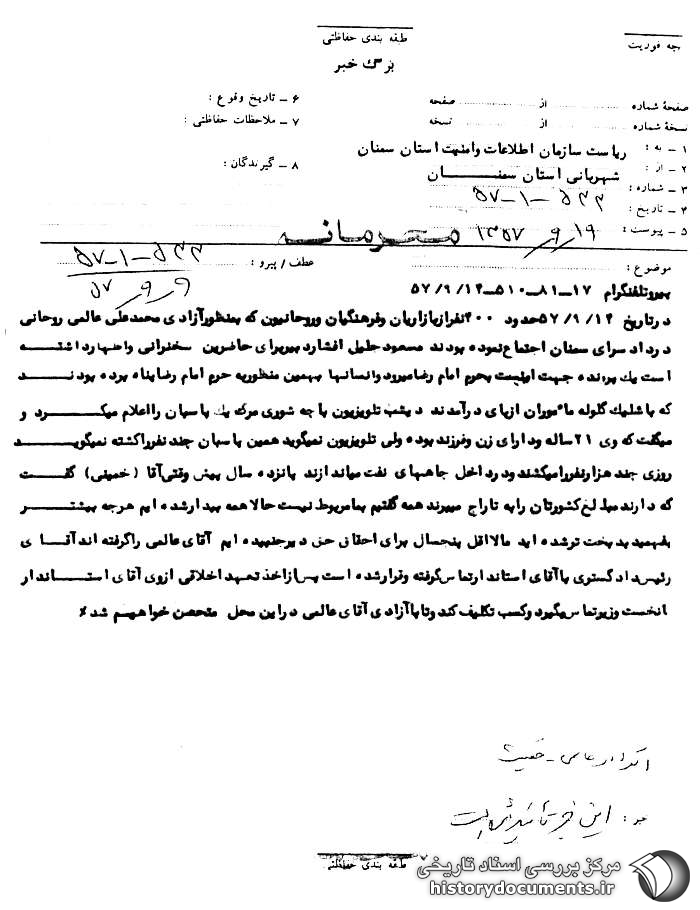 طبقه بندی حفاظتی
چه فوریت
برگ خبر
صفحهٔ شماره از صفحه
نسخهٔ شماره از نسخه
۱ ـ به : ریاست سازمان اطلاعات وامنیت استان سمنان
۲ ـ از : شهربانی استان سمنـــــــان
۳ ـ شماره : ۵۲۲ــ۱ــ۵۷
۴ ـ تاریخ :
۵ ـ پیوست : ۱۳۵۷/۹/۱۹
۶ ـ تاریخ وقوع :
۷ ـ ملاحظات حفاظتی :
۸ ـ گیرندگان :
محرمانه
موضوع :
عطف / پیرو : ۵۲۲ــ۱ــ۵۷
پیروتلفنگرام ۱۷ــ۸۱ــ۵۱۰ــ۵۷/۹/۱۴
درتاریخ ۵۷/۹/۱۴حدود ۴۰۰نفرازبازاریان وفرهنگیان وروحانیون که بمنظورآزادی محمدعلی عالمی روحانی
درداد سرای سمنان اجتماع نموده بودند مسعود جلیل افشارد بیربرای حاضرین سخنرانی واظهارداشتــه
است یک پرنده جهت امنیت بحرم امام رضا میرود وانسانها بهمین منظوربه حرم امام رضاپناه برده بودنـــد
که باشلیک گلوله مأموران ازپای درآمدند دیشب تلویزیون باچه شوری مرگ یک پاسبان رااعلام میکـــرد و
میگفت که وی ۲۱ساله ودارای زن وفرزند بوده ولی تلویزیون نمیگوید همین پاسبان چند نفرراکشته نمیگویـــد
روزی چند هزارنفررامیکشند ودرداخل چاههای نفت میاندازند پانزده سال پیش وقتی آقا (خمینی) گفـــت
که دارند مبلغ کشورتان رابه تاراج میبرند همه گفتیم بمامربوط نیست حالا همه بیدارشده ایم هرچه بیشتـــر
بفهمید بدبخت ترشده اید حالااقل پنجسال برای احقاق حق دیرجنبیده ایم آقای عالمی راگرفته اند آقـــای
رئیس دادگستری باآقای استاندارتماس گرفته وقرارشده است پس ازاخذ تعهد اخلاقی ازوی آقای استـــاندار
بانخست وزیرتماس بگیرد وکسب تکلیف کند وتاباآزادی آقای عالمی دراین محل متحصن خواهیم شد٪
این خبر تأیید است
طبقه بندی حفاظتی
مرکز بررسی اسناد تاریخی
historydocuments.ir